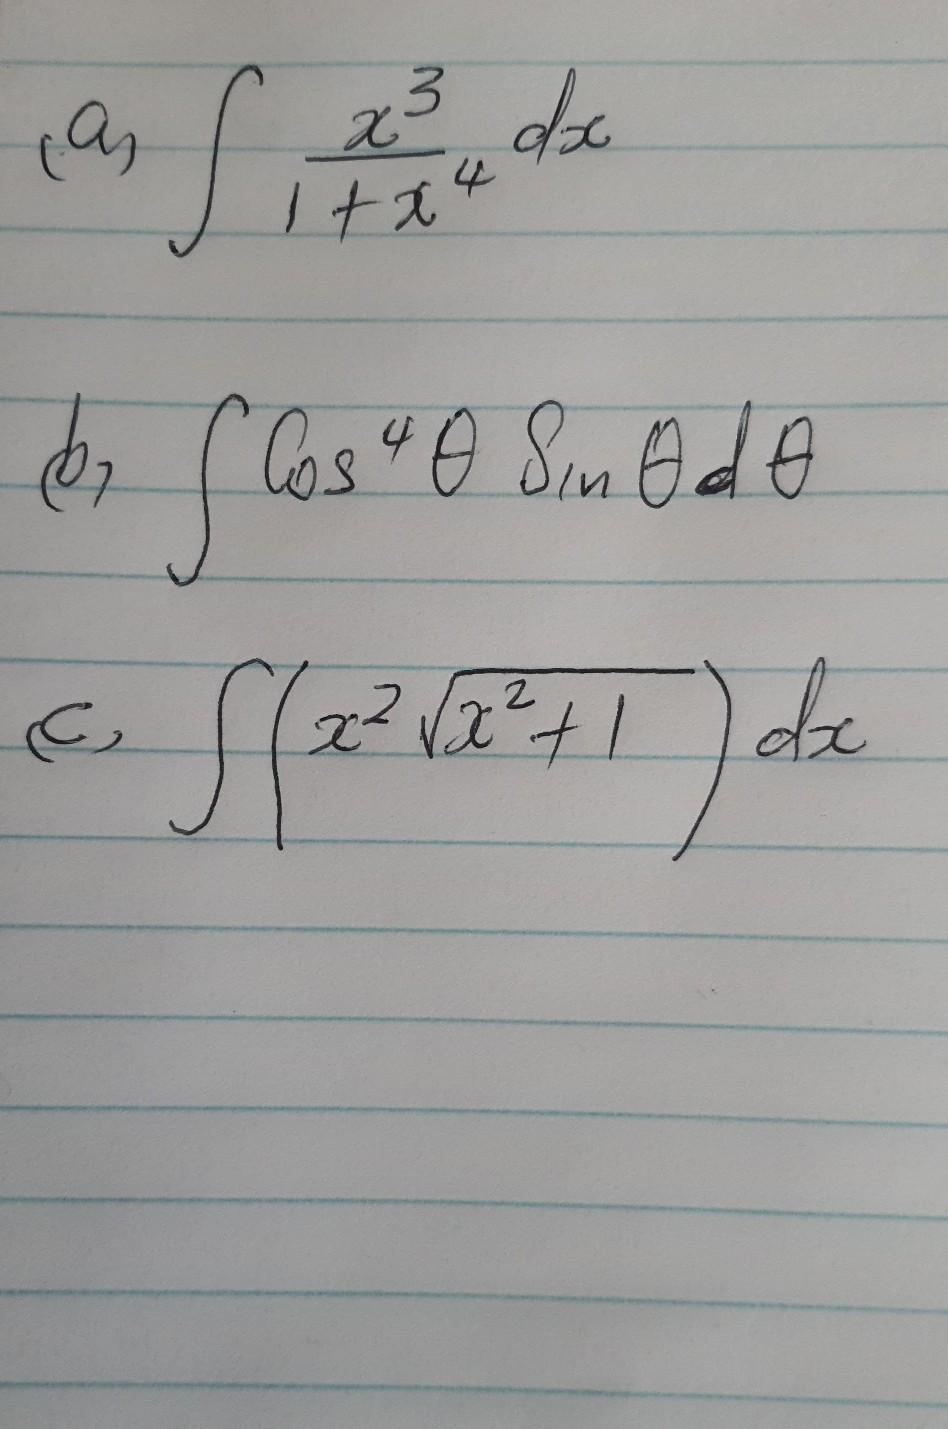 (a) ∫ x³/(1+x⁴) dx
(b) ∫ Cos⁴θ Sinθ dθ
(c) ∫ (x² √(x²+1)) dx